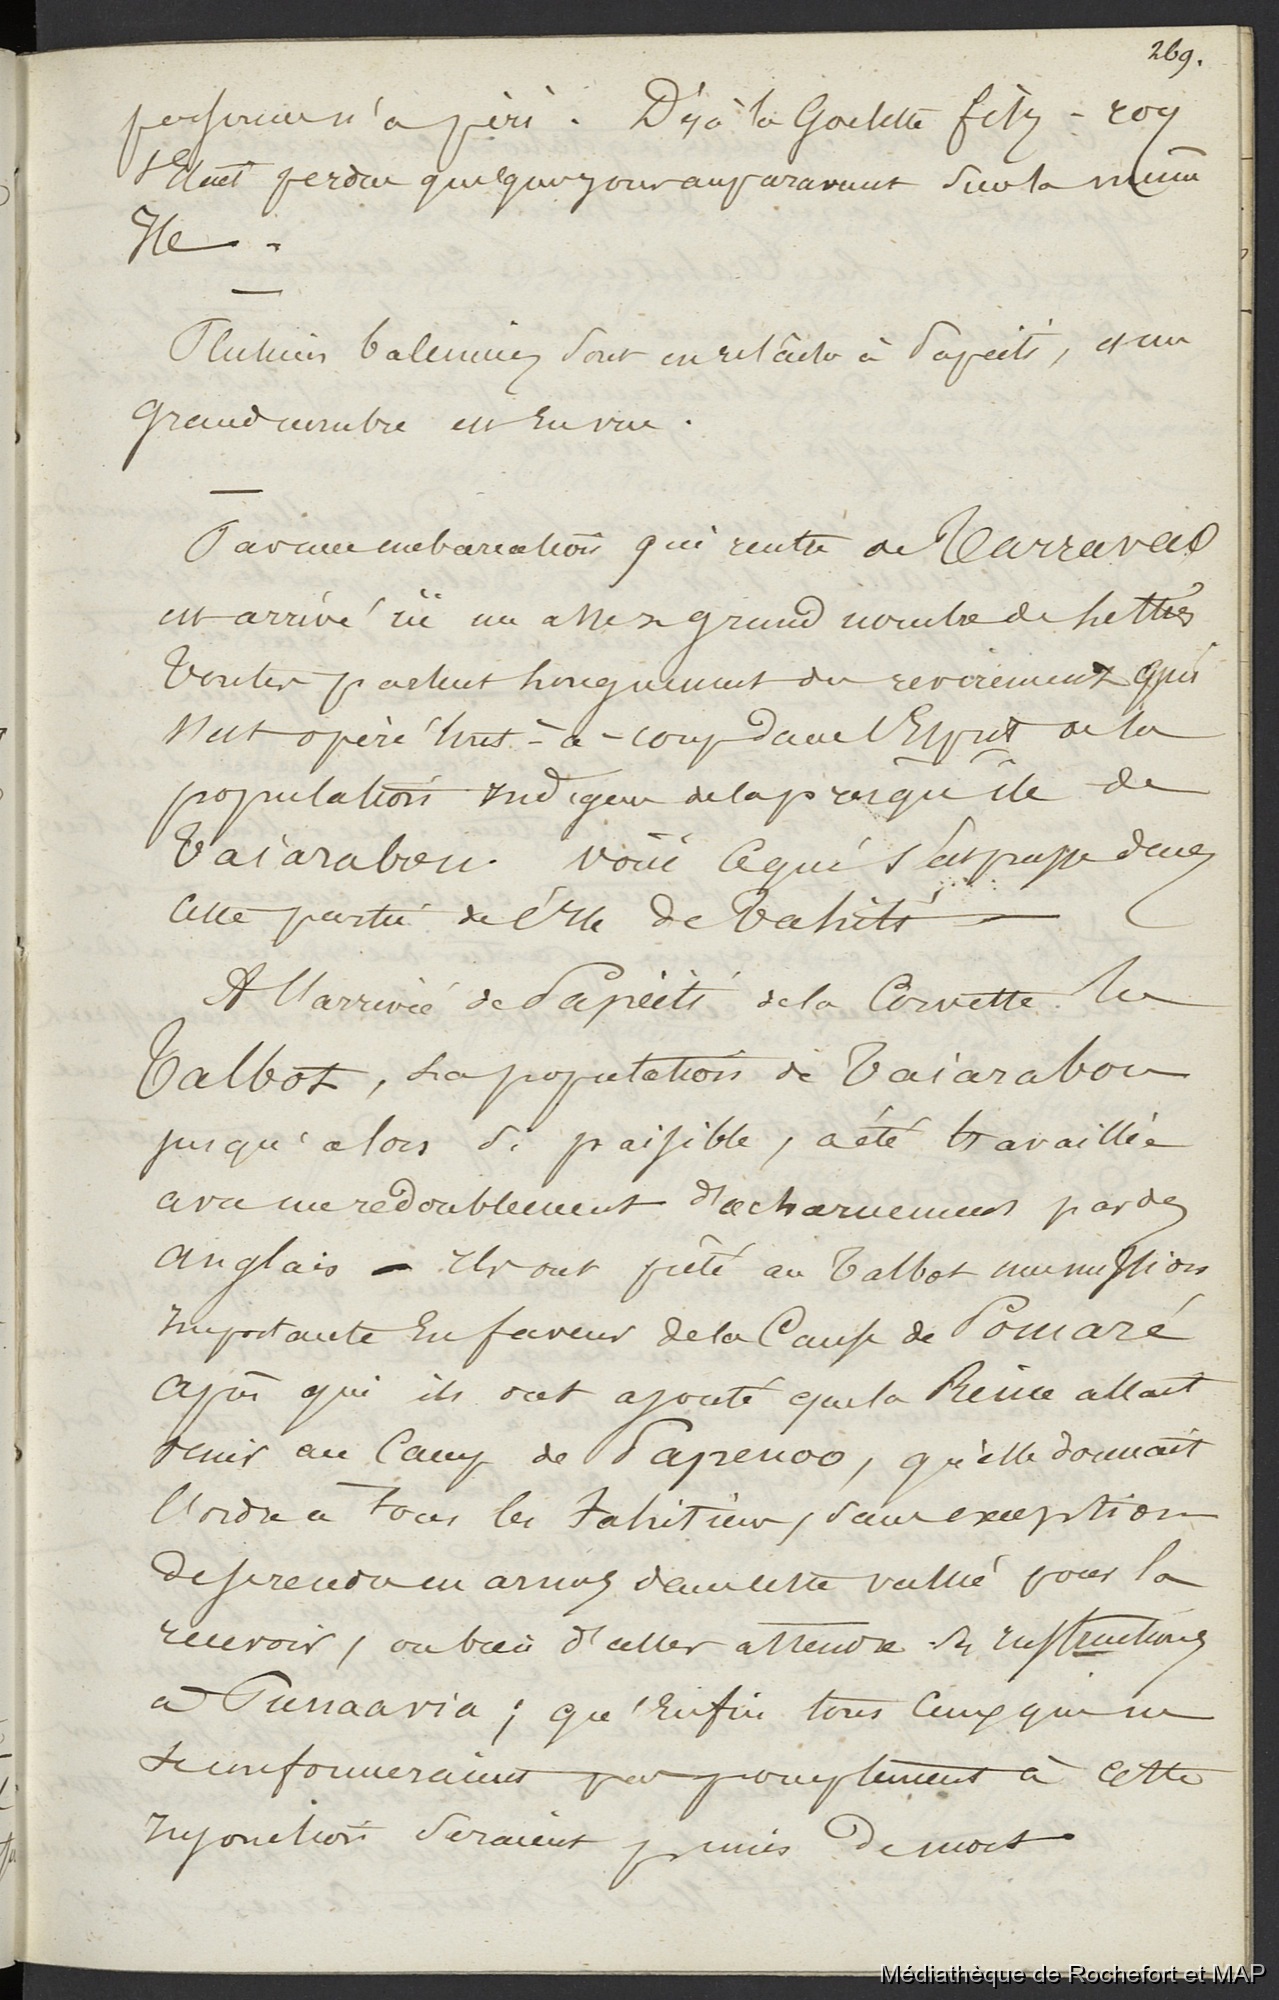 269.
personne n'a péri. Déjà la Goelette fitz-roy
s'Etait perdue quelques jours auparavant sur la même
Ile.
Plusieurs baleiniers sont en relâche à Papeiti, et un
grand nombre est En vue.
Par une embarcation qui rentre de Tarravao
est arrivé ici un assez grand nombre de lettres
toutes parlent longuement du revirement qui
s'est opéré tout-à-coup dans l'Esprit de la
population Indigène de la presqu'ile de
Taiarabou. voici ce qui s'est passé dans
cette partie de l'Ile de Tahiti
A l'arrivée de Papéiti de la Corvette le
Talbot, la population de Taiarabou
jusqu'alors si paisible, a été travaillée
avec un redoublement d'acharnement par des
anglais - Ils ont prêté au Talbot une mission
Importante En faveur de la Cause de Pomaré
après quoi ils ont ajouté que la Reine allait
venir au Camp de Papenoo, qu'elle donnait
l'ordre à tous les Tahitiens, sans exception
de se rendre en armes dans cette vallée pour la
recevoir, ou bien d'aller attendre ses Instructions
a Punaavia; qu'Enfin tous Ceux qui ne
se conformeraient pas promptement à cette
Injonction seraient punis de mort